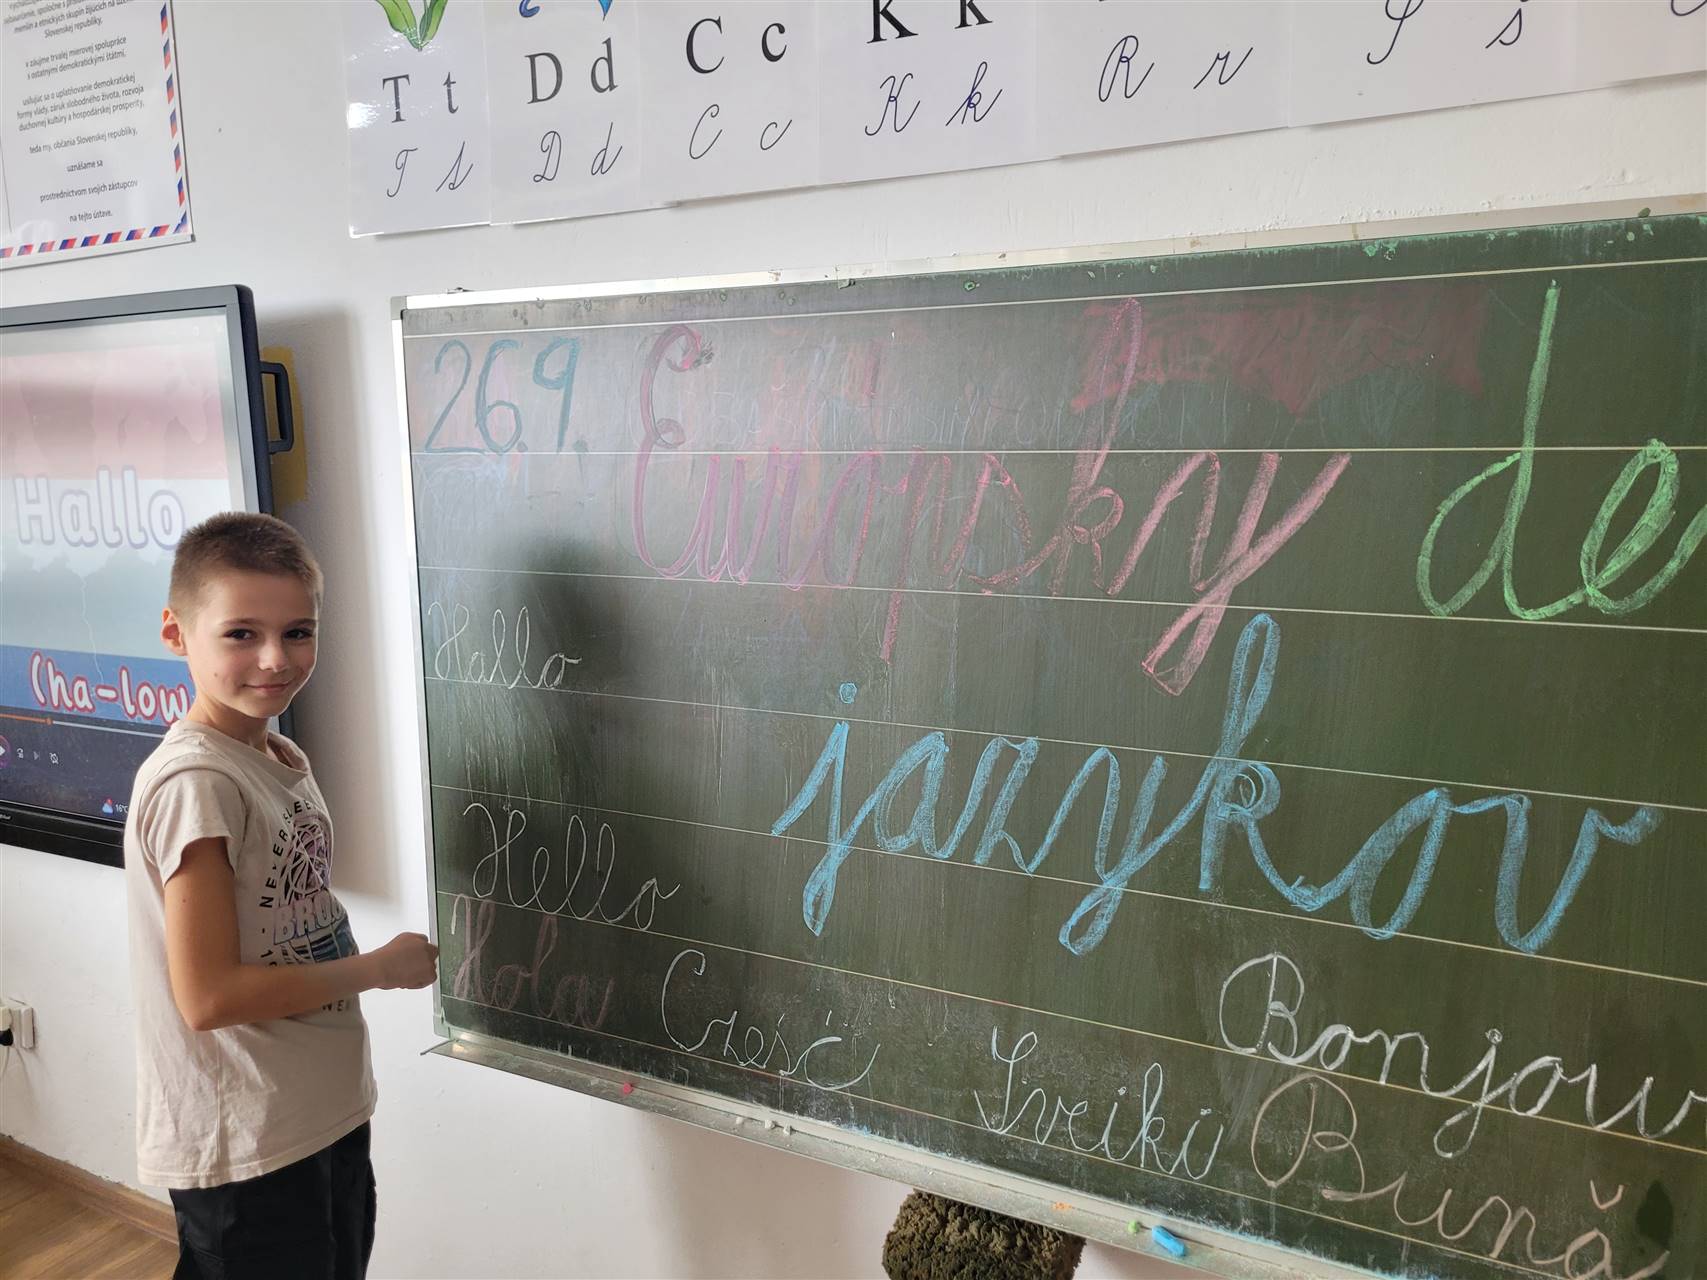 nemšín a etnických skupín žijúcich na území
Slovenskej republiky,
v záujme trvalej mierovej spolupráce
s ostatnými demokratickými štátmi,
usilujúc sa o uplatňovanie demokratickej
formy vlády, záruk slobodného života, rozvoja
duchovnej kultúry a hospodárskej prosperity,
teda my, občania Slovenskej republiky,
uznášame sa
prostredníctvom svojich zástupcov
na tejto ústave.
T t
D d
C c
K k
T t
D d
C c
K k
R r
S s
Hallo
(ha-low
16°C
26.9. Európsky de
jazykov
Hallo
Hello
Hola
Cześć
Sveiki
Bonjour
Bună
BRO